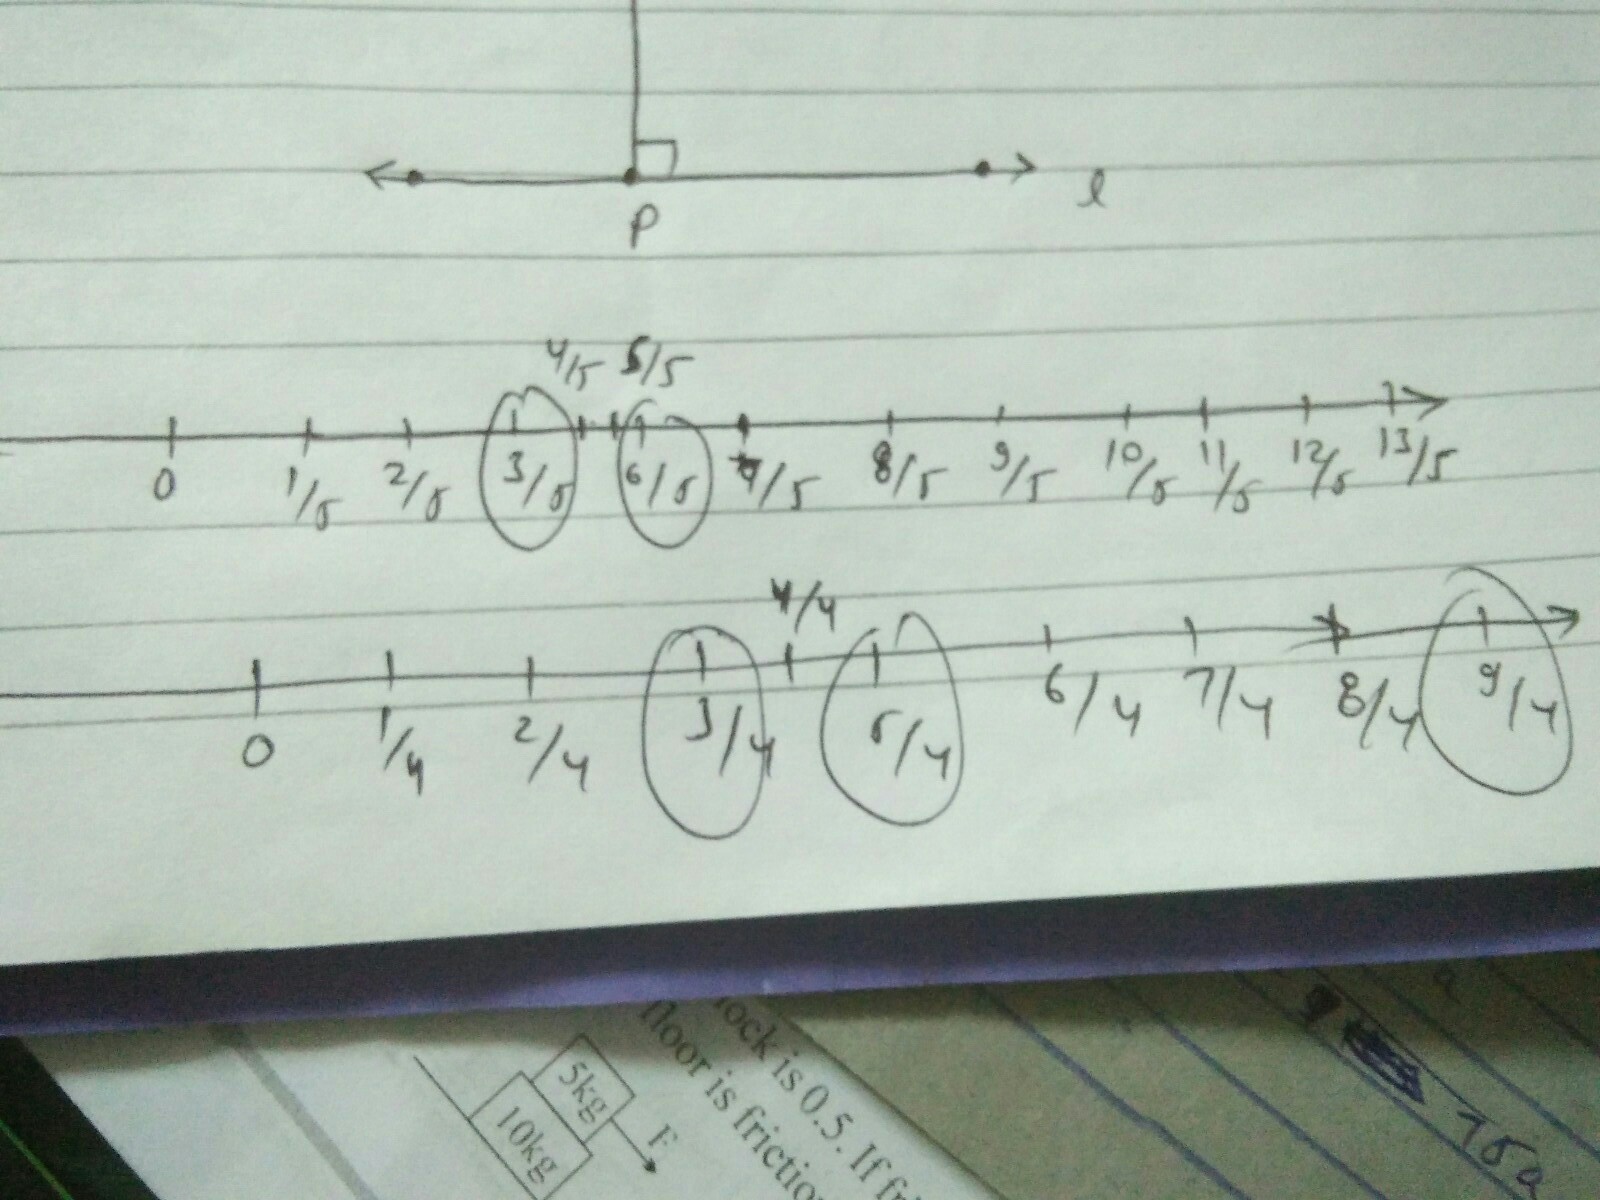 P
l
4/5 5/5
0 1/5 2/5 3/5 6/5 7/5 8/5 9/5 10/5 11/5 12/5 13/5
4/4
0 1/4 2/4 3/4 5/4 6/4 7/4 8/4 9/4
lock is 0.5. If
floor is
5kg
10kg
F